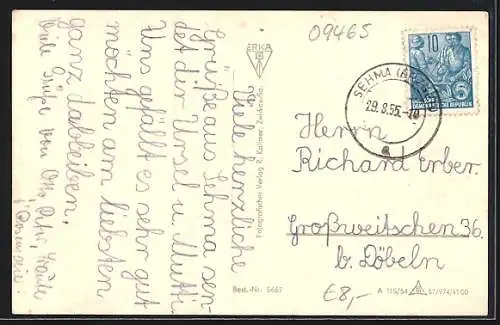 Viele herzliche
Grüße aus Sehma sen-
det dir Ursel u. Mutti.
Uns gefällt es sehr gut
möchten am liebsten
ganz dableiben.
Viele Grüße von Otto, Peter,
Rosemarie!
ERKA
Fotografischer Verlag R. Kallmer, Zwickau/Sa.
Best.-Nr. 5667
09465
SEHMA (ERZGEB)
29.8.55.-10
a
10
DEUTSCHE DEMOKRATISCHE REPUBLIK
Herrn
Richard Erber.
Großweitschen 36
b. Döbeln
€8,-
A 115/54 57/974/4100